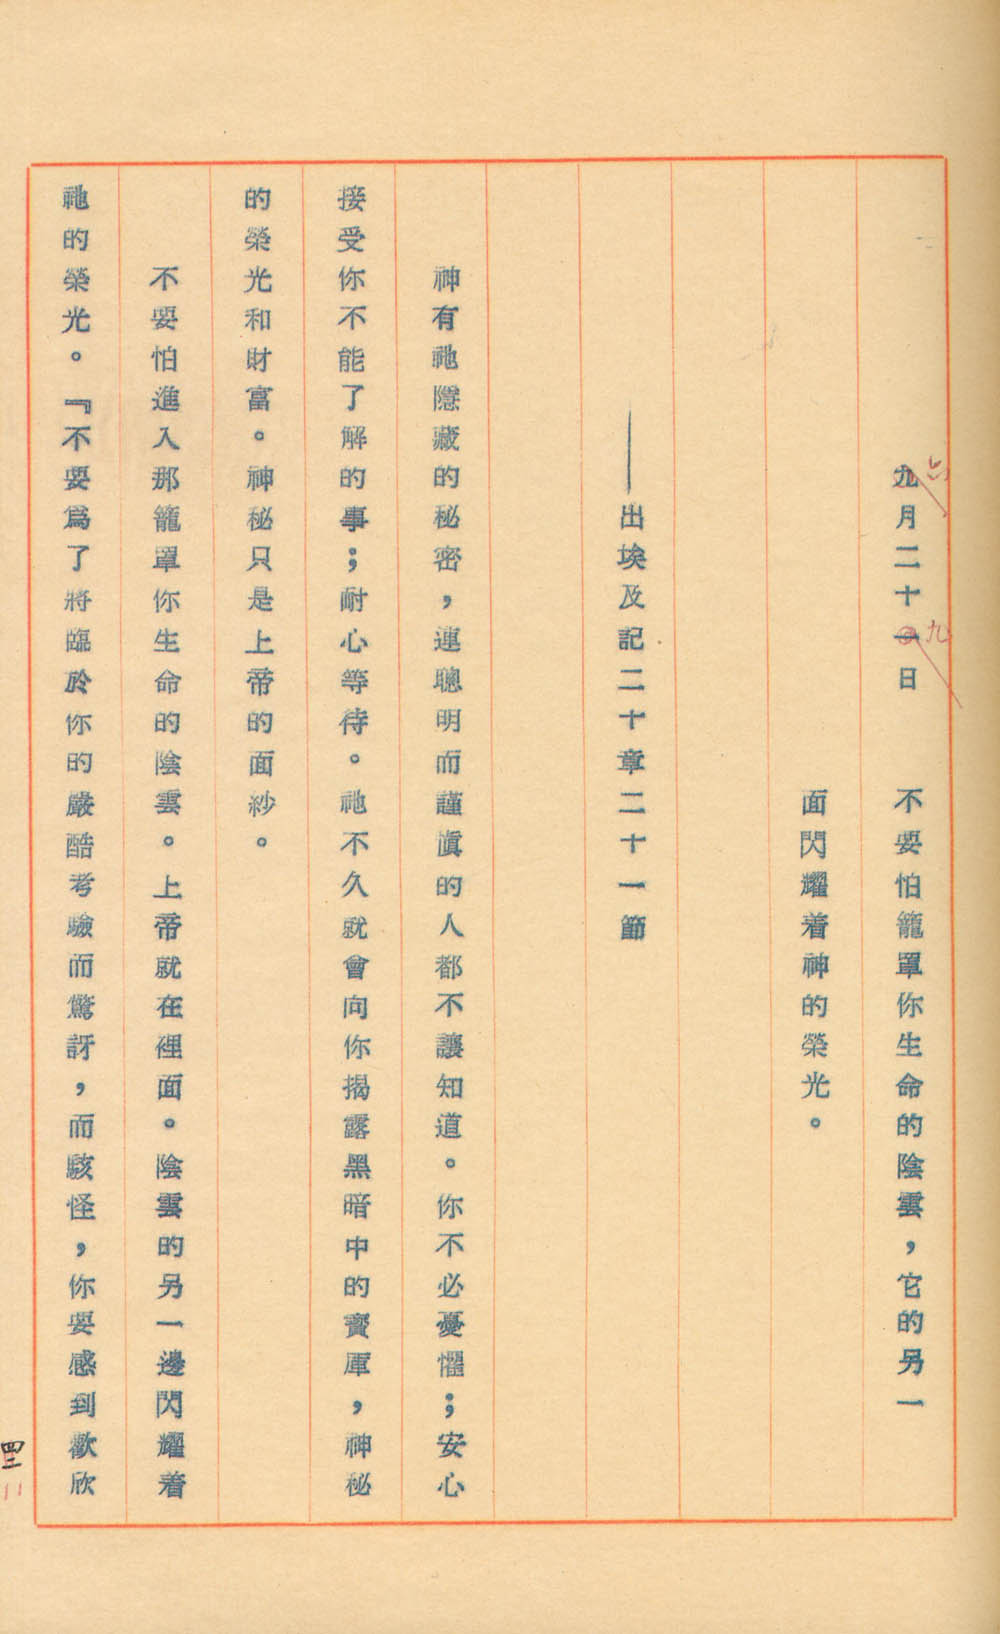 九月二十一日　　不要怕籠罩你生命的陰雲，它的另一
六
九
面閃耀着神的榮光。
——出埃及記二十章二十一節
神有祂隱藏的秘密，連聰明而謹慎的人都不讓知道。你不必憂懼；安心
接受你不能了解的事；耐心等待。祂不久就會向你揭露黑暗中的寶庫，神秘
的榮光和財富。神秘只是上帝的面紗。
不要怕進入那籠罩你生命的陰雲。上帝就在裡面。陰雲的另一邊閃耀着
祂的榮光。『不要爲了將臨於你的嚴酷考驗而驚訝，而駭怪，你要感到歡欣